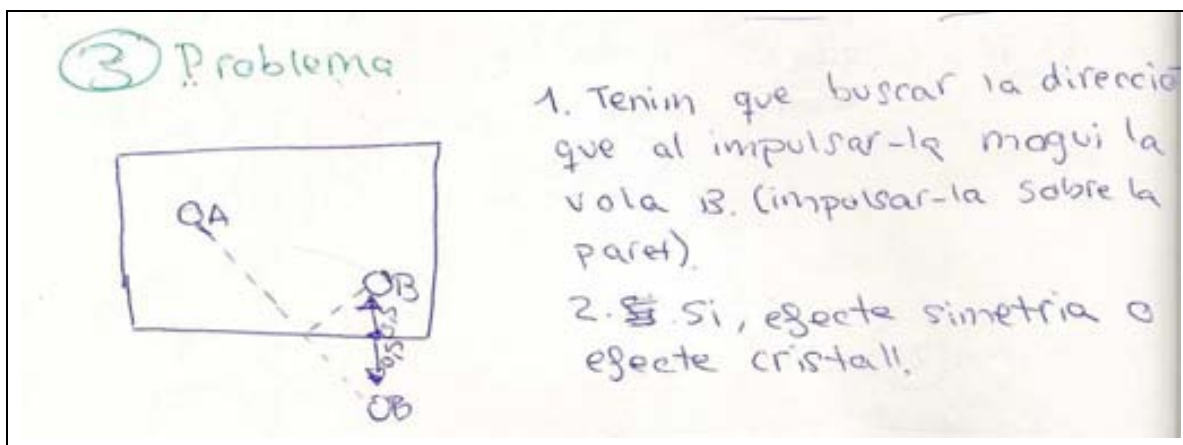 3 Problema
1. Tenim que buscar la direcció
que al impulsar-la mogui la
vola B. (impulsar-la sobre la
paret).
2. Si, efecte simetria o
efecte cristall.
A
B
0,5
0,5
B